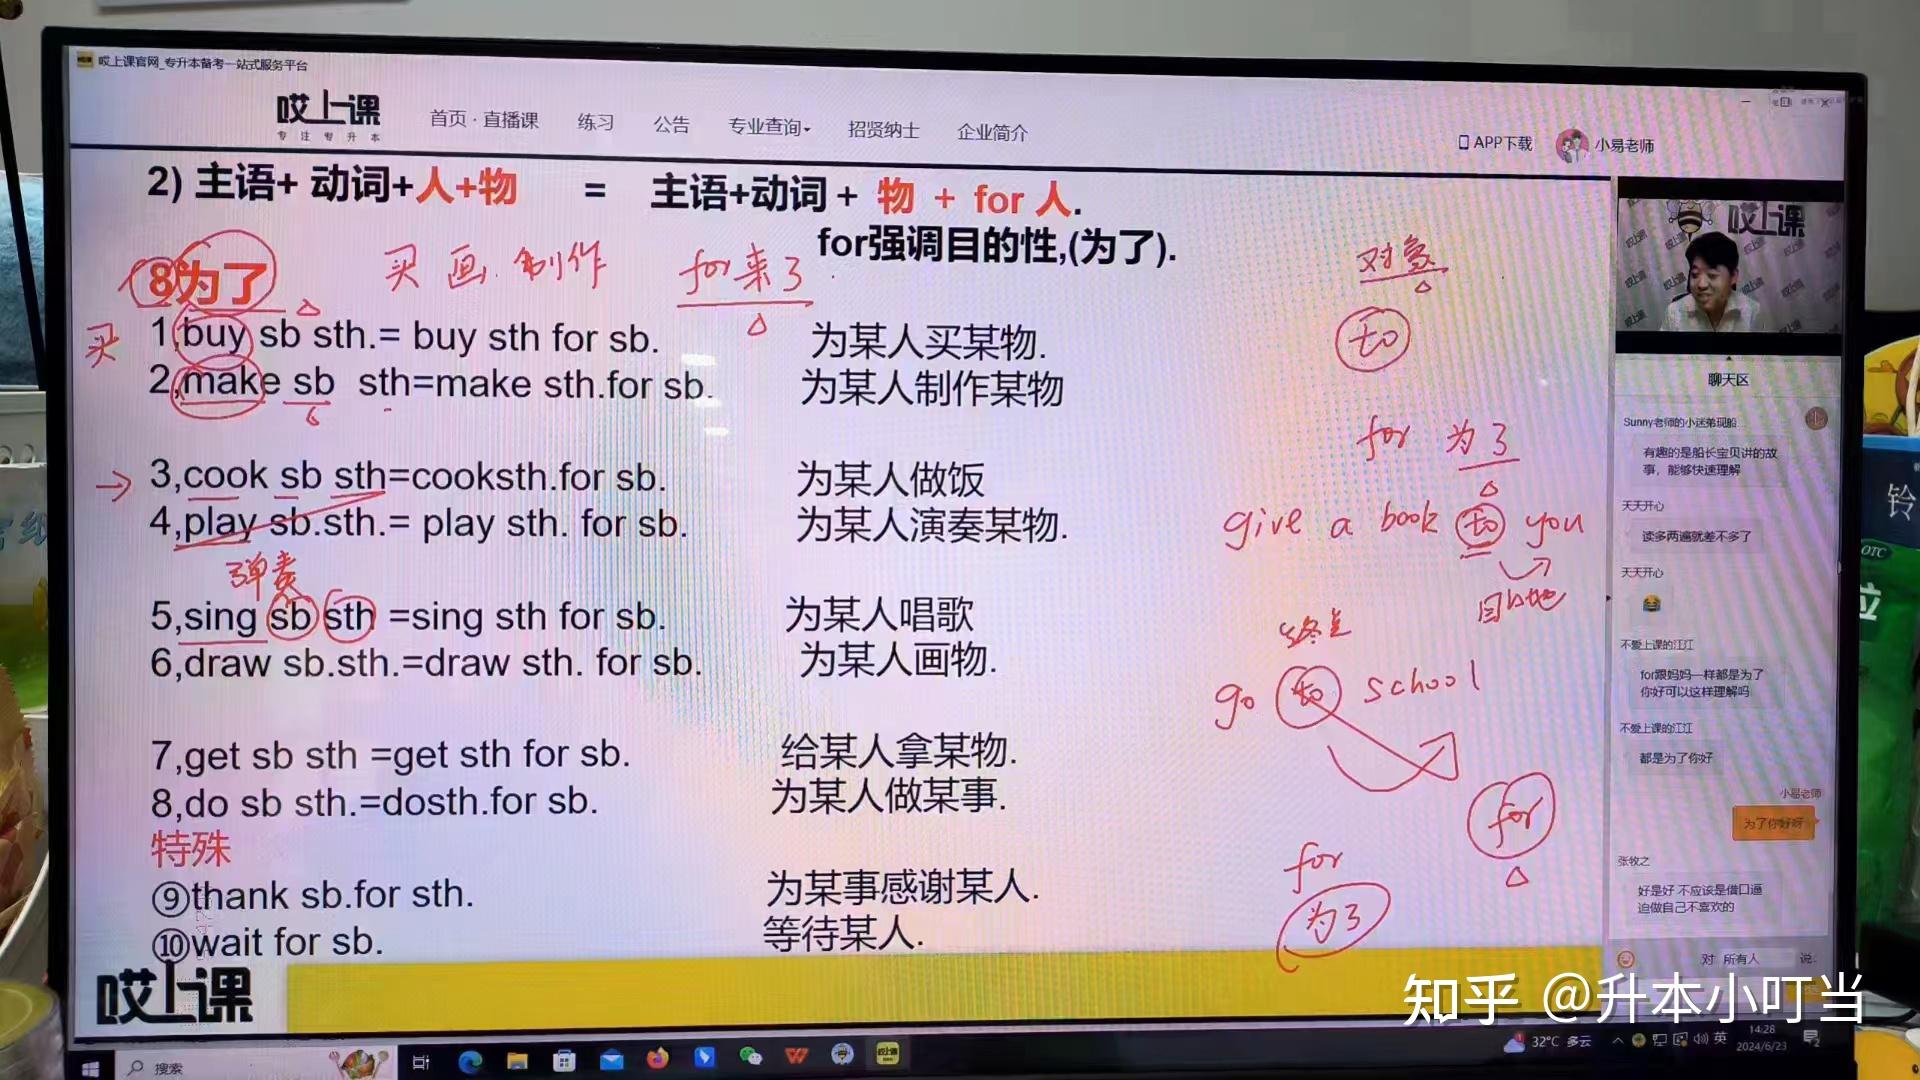 哎上课官网_专升本备考一站式服务平台
哎上课
专注专升本
首页 · 直播课 练习 公告 专业查询 招贤纳士 企业简介
APP下载 小易老师
2) 主语+ 动词+人+物 = 主语+动词 + 物 + for 人.
for强调目的性,(为了).
8为了
买 画 制作 for来了
买
1,buy sb sth.= buy sth for sb. 为某人买某物.
2,make sb sth=make sth.for sb. 为某人制作某物
3,cook sb sth=cooksth.for sb. 为某人做饭
4,play sb.sth.= play sth. for sb. 为某人演奏某物.
弹奏
5,sing sb sth =sing sth for sb. 为某人唱歌
6,draw sb.sth.=draw sth. for sb. 为某人画物.
7,get sb sth =get sth for sb. 给某人拿某物.
8,do sb sth.=dosth.for sb. 为某人做某事.
特殊
⑨thank sb.for sth. 为某事感谢某人.
⑩wait for sb. 等待某人.
哎上课
对象
to
for 为了
give a book to you
目的地
终点
go to school
for
for
为了
哎上课
聊天区
Sunny老师的小迷弟现船
有趣的是船长宝贝讲的故
事，能够快速理解
天天开心
读多两遍就差不多了
天天开心
不爱上课的江江
for跟妈妈一样都是为了
你好可以这样理解吗
不爱上课的江江
都是为了你好
小易老师
为了你好呀
张牧之
好是好 不应该是借口逼
迫做自己不喜欢的
对 所有人 说:
铃
OTC
知乎 @升本小叮当
搜索
32°C 多云
英
14:28
2024/6/23